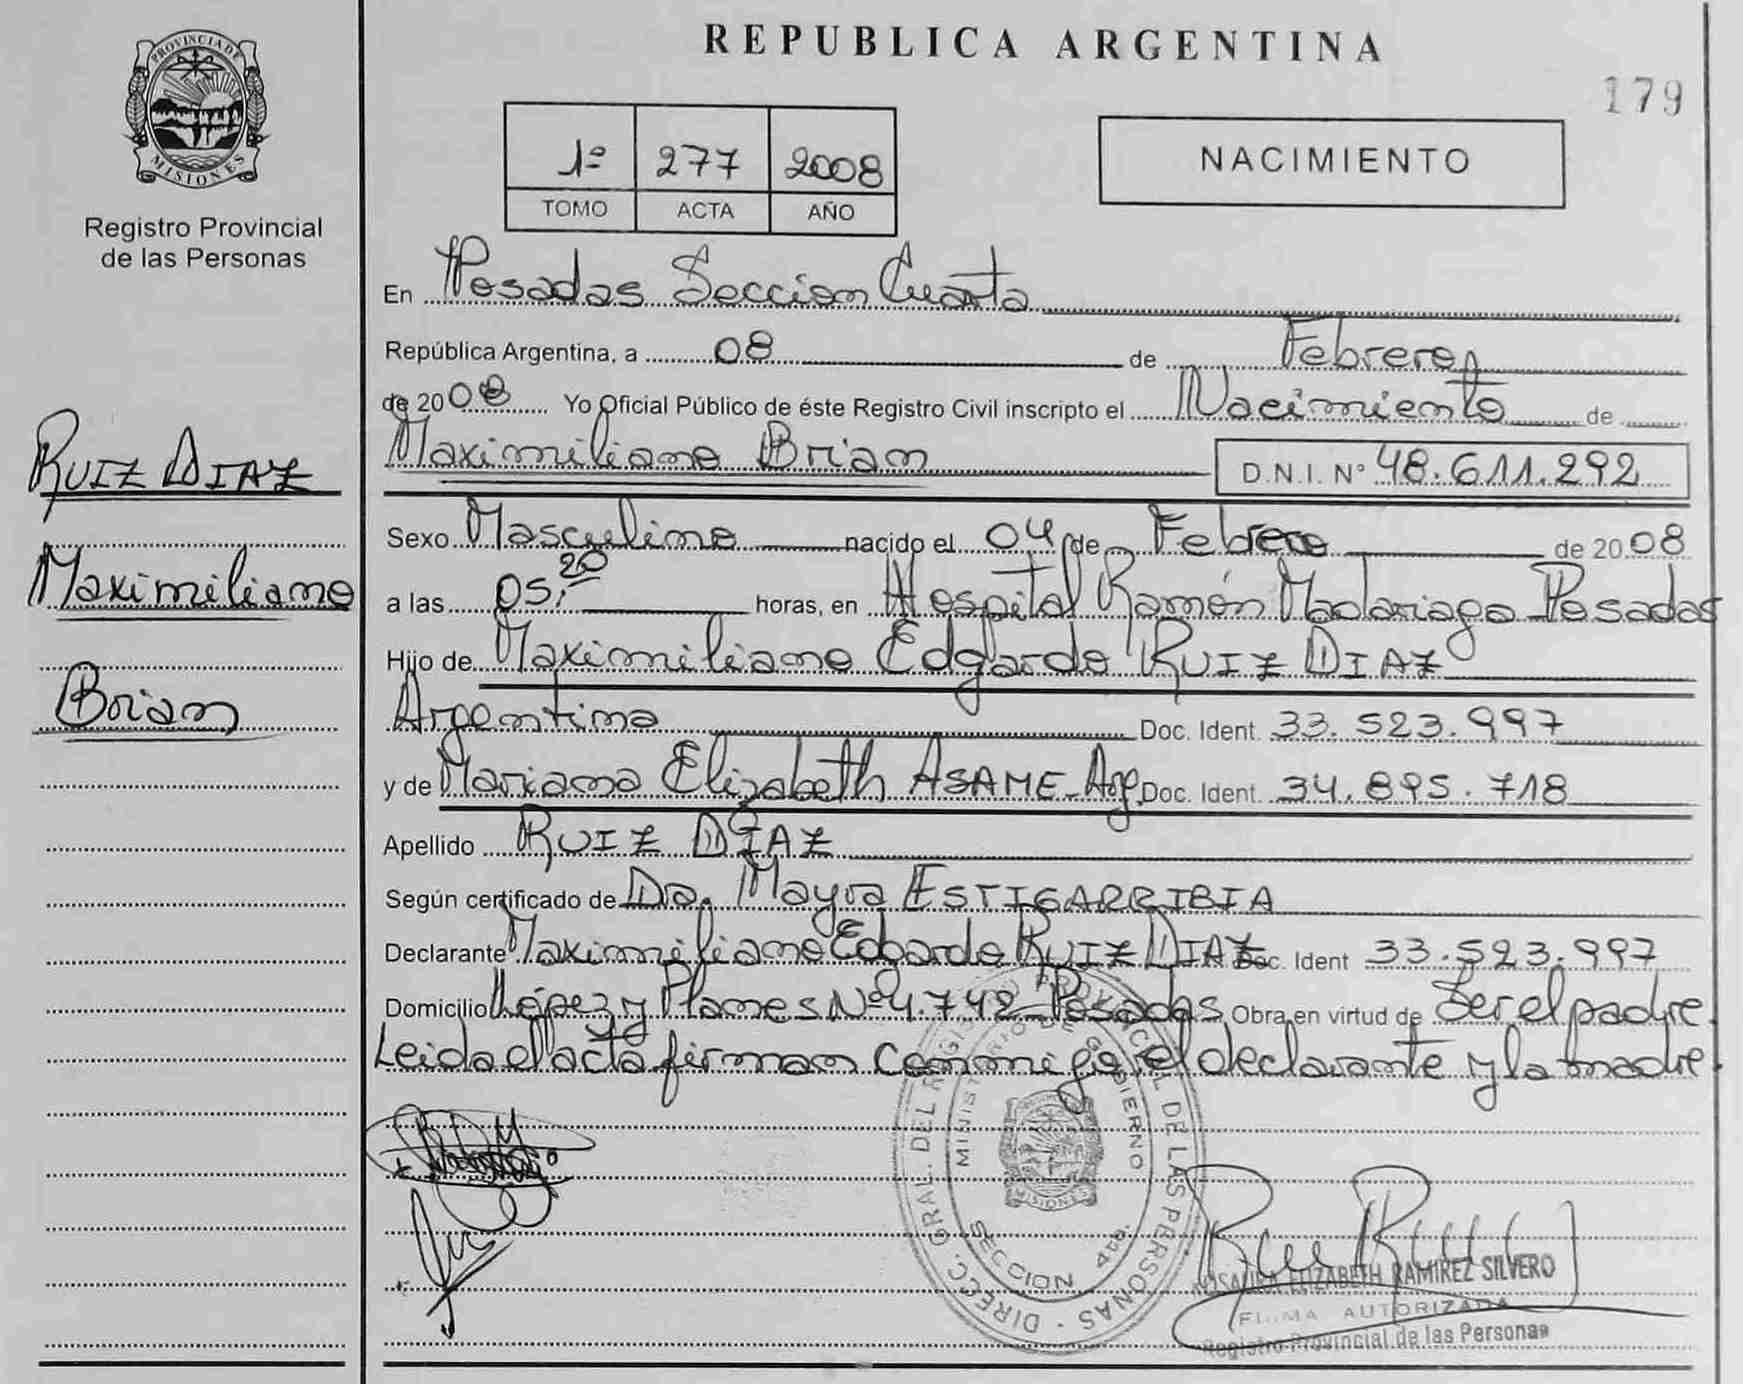 REPUBLICA ARGENTINA
179
PROVINCIA DE
MISIONES
Registro Provincial
de las Personas
1º 277 2008
TOMO ACTA AÑO
NACIMIENTO
En Posadas Seccion Cuarta
República Argentina, a 08 de Febrero
de 2008 Yo Oficial Público de éste Registro Civil inscripto el Nacimiento de
Maximiliano Brian D.N.I. Nº 48.611.292
RUIZ DIAZ
Maximiliano
Brian
Sexo Masculino nacido el 04 de Febrero de 2008
a las 05:20 horas, en Hospital Ramón Madariaga Posadas
Hijo de Maximiliano Edgardo RUIZ DIAZ
Argentino Doc. Ident. 33.523.997
y de Mariana Elizabeth ASAME - Arg. Doc. Ident. 34.895.718
Apellido RUIZ DIAZ
Según certificado de Dra. Mayra ESTIGARRIBIA
Declarante Maximiliano Edgardo RUIZ DIAZ Doc. Ident 33.523.997
Domicilio López y Planes Nº 4.742 - Posadas Obra en virtud de Ser el padre.
Leida el acta firman conmigo el declarante y la madre.
DIRECC. GRAL. DEL REGISTRO PROVINCIAL DE LAS PERSONAS
MINISTERIO DE GOBIERNO
MISIONES
SECCION 4ta.
ROSAURA ELIZABETH RAMIREZ SILVERO
FIRMA AUTORIZADA
Registro Provincial de las Personas